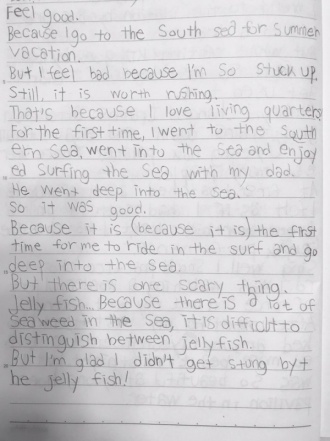 Feel good.
Because I go to the South sea for Summer
vacation.
But I feel bad because I'm so stuck up.
Still, it is worth rushing.
That's because I love living quarters
For the first time, I went to the South
ern Sea, went into the sea and enjoy
ed surfing the sea with my dad.
He went deep into the sea.
So it was good.
Because it is (because it is) the first
time for me to ride in the surf and go
deep into the sea.
But there is one scary thing.
Jelly fish... Because there is a lot of
Seaweed in the sea, it is difficlt to
distinguish between jelly fish.
But I'm glad I didn't get stung by t
he jelly fish!